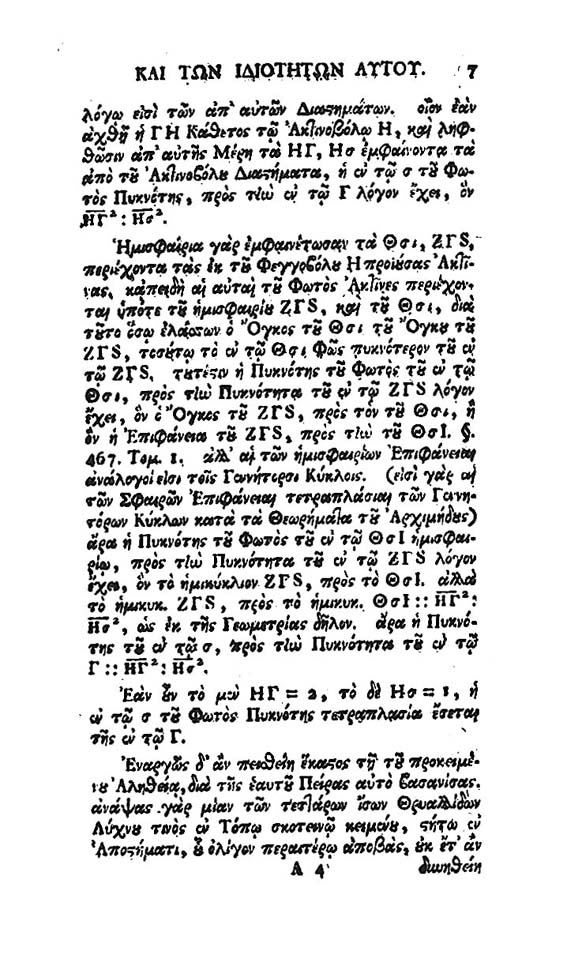 ΚΑΙ ΤΩΝ ΙΔΙΟΤΗΤΩΝ ΑΥΤΟΥ. 7
λόγῳ εἰσὶ τῶν ἀπ' αὐτῶν Διαςημάτων. οἷον ἐὰν
ἀχθῇ ἡ ΓΗ Κάθετος τῷ Ἀκτινοβόλῳ Η, καὶ ληφ-
θῶσιν ἀπ' αὐτῆς Μέρη τὰ ΗΓ, Ησ ἐμφαίνοντα τὰ
ἀπὸ τȣ͂ Ἀκτινοβόλȣ Διαςήματα, ἡ ἐν τῷ σ τȣ͂ Φω-
τὸς Πυκνότης, πρὸς τὴν ἐν τῷ Γ λόγον ἔχει, ὃν
ΗΓ²: Ησ².
Ἡμισφαίρια γὰρ ἐμφαινέτωσαν τὰ Θσι, ΖΓS,
περιέχοντα τὰς ἐκ τȣ͂ Φεγγοβόλȣ Η προϊούσας Ἀκτῖ-
νας, κᾀπειδὴ αἱ αὐταὶ τȣ͂ Φωτὸς Ἀκτῖνες περιέχον-
ται ὑπότε τȣ͂ ἡμισφαιρίȣ ΖΓS, καὶ τȣ͂ Θσι, διὰ
τȣ͂το ὅσῳ ἐλάττων ὁ Ὄγκος τȣ͂ Θσι τȣ͂ Ὄγκȣ τȣ͂
ΖΓS, τοσȣ́τῳ τὸ ἐν τῷ Θσι Φῶς πυκνότερον τȣ͂ ἐν
τῷ ΖΓS. τȣτέςιν ἡ Πυκνότης τȣ͂ Φωτὸς τȣ͂ ἐν τῷ
Θσι, πρὸς τὴν Πυκνότητα τȣ͂ ἐν τῷ ΖΓS λόγον
ἔχει, ὃν ὁ Ὄγκος τȣ͂ ΖΓS, πρὸς τὸν τȣ͂ Θσι, ἢ
ὃν ἡ Ἐπιφάνεια τȣ͂ ΖΓS, πρὸς τὴν τȣ͂ ΘσΙ. §.
467. Τομ. 1. ἀλλ' αἱ τῶν ἡμισφαιρίων Ἐπιφάνειαι
ἀνάλογοί εἰσι τοῖς Γεννήτορσι Κύκλοις. (εἰσὶ γὰρ αἱ
τῶν Σφαιρῶν Ἐπιφάνειαι τετραπλάσιαι τῶν Γεννη-
τόρων Κύκλων κατὰ τὰ Θεωρήματα τȣ͂ Ἀρχιμήδȣς)
ἄρα ἡ Πυκνότης τȣ͂ Φωτὸς τȣ͂ ἐν τῷ ΘσΙ ἡμισφαι-
ρίῳ, πρὸς τὴν Πυκνότητα τȣ͂ ἐν τῷ ΖΓS λόγον
ἔχει, ὃν τὸ ἡμικύκλιον ΖΓS, πρὸς τὸ ΘσΙ. ἀλλὰ
τὸ ἡμικυκ. ΖΓS, πρὸς τὸ ἡμικυκ. ΘσΙ :: ΗΓ²:
Ησ², ὡς ἐκ τῆς Γεωμετρίας δῆλον. ἄρα ἡ Πυκνό-
της τȣ͂ ἐν τῷ σ, πρὸς τὴν Πυκνότητα τȣ͂ ἐν τῷ
Γ :: ΗΓ²: Ησ².
Ἐὰν ȣ͂ν τὸ μὲν ΗΓ = 2, τὸ δὲ Ησ = 1, ἡ
ἐν τῷ σ τȣ͂ Φωτὸς Πυκνότης τετραπλασία ἔσεται
τῆς ἐν τῷ Γ.
Ἐναργῶς δ' ἂν πεισθείη ἕκαςος τῇ τȣ͂ προκειμέ-
νȣ Ἀληθείᾳ, διὰ τῆς ἑαυτȣ͂ Πείρας αὐτὸ βασανίσας.
ἀνάψας γὰρ μίαν τῶν τεττάρων ἴσων Θρυαλλίδων
Λύχνȣ τινὸς ἐν Τόπῳ σκοτεινῷ κειμένȣ, ςήτω ἐν
Ἀποςήματι, ȣ͂ ὀλίγον περαιτέρω ἀποβὰς, ȣ̓κ ἔτ' ἂν
Α 4 δυνηθείη